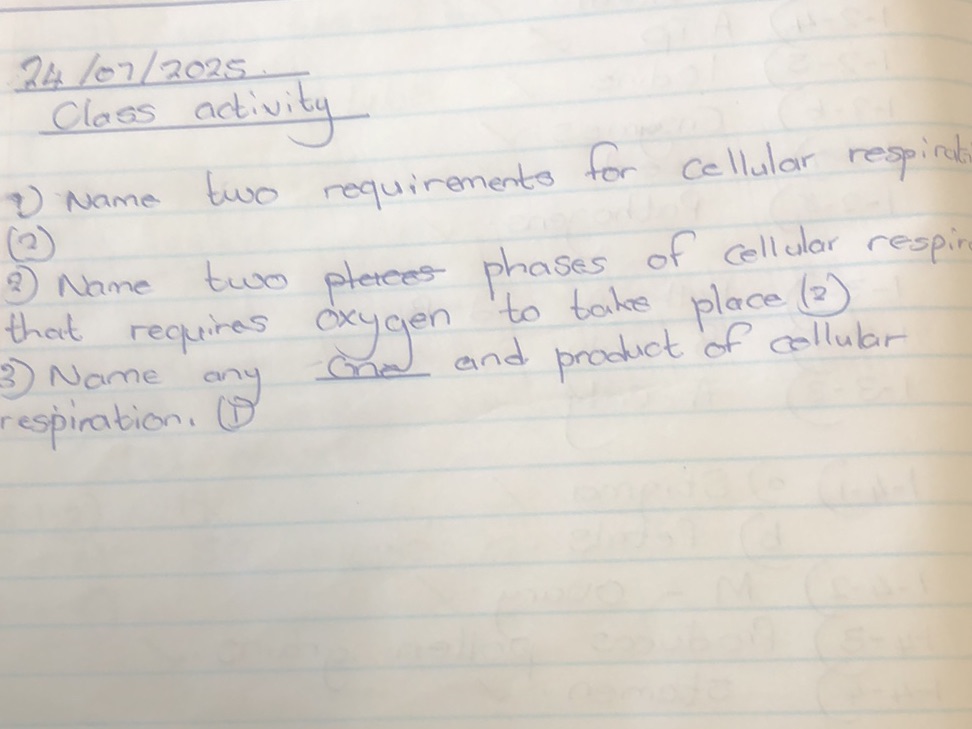 24/07/2025
Class activity
1) Name two requirements for cellular
(2)
2) Name two phases of cellular
that requires oxygen to take place (2)
3) Name any One and product of cellular
respiration. (1)